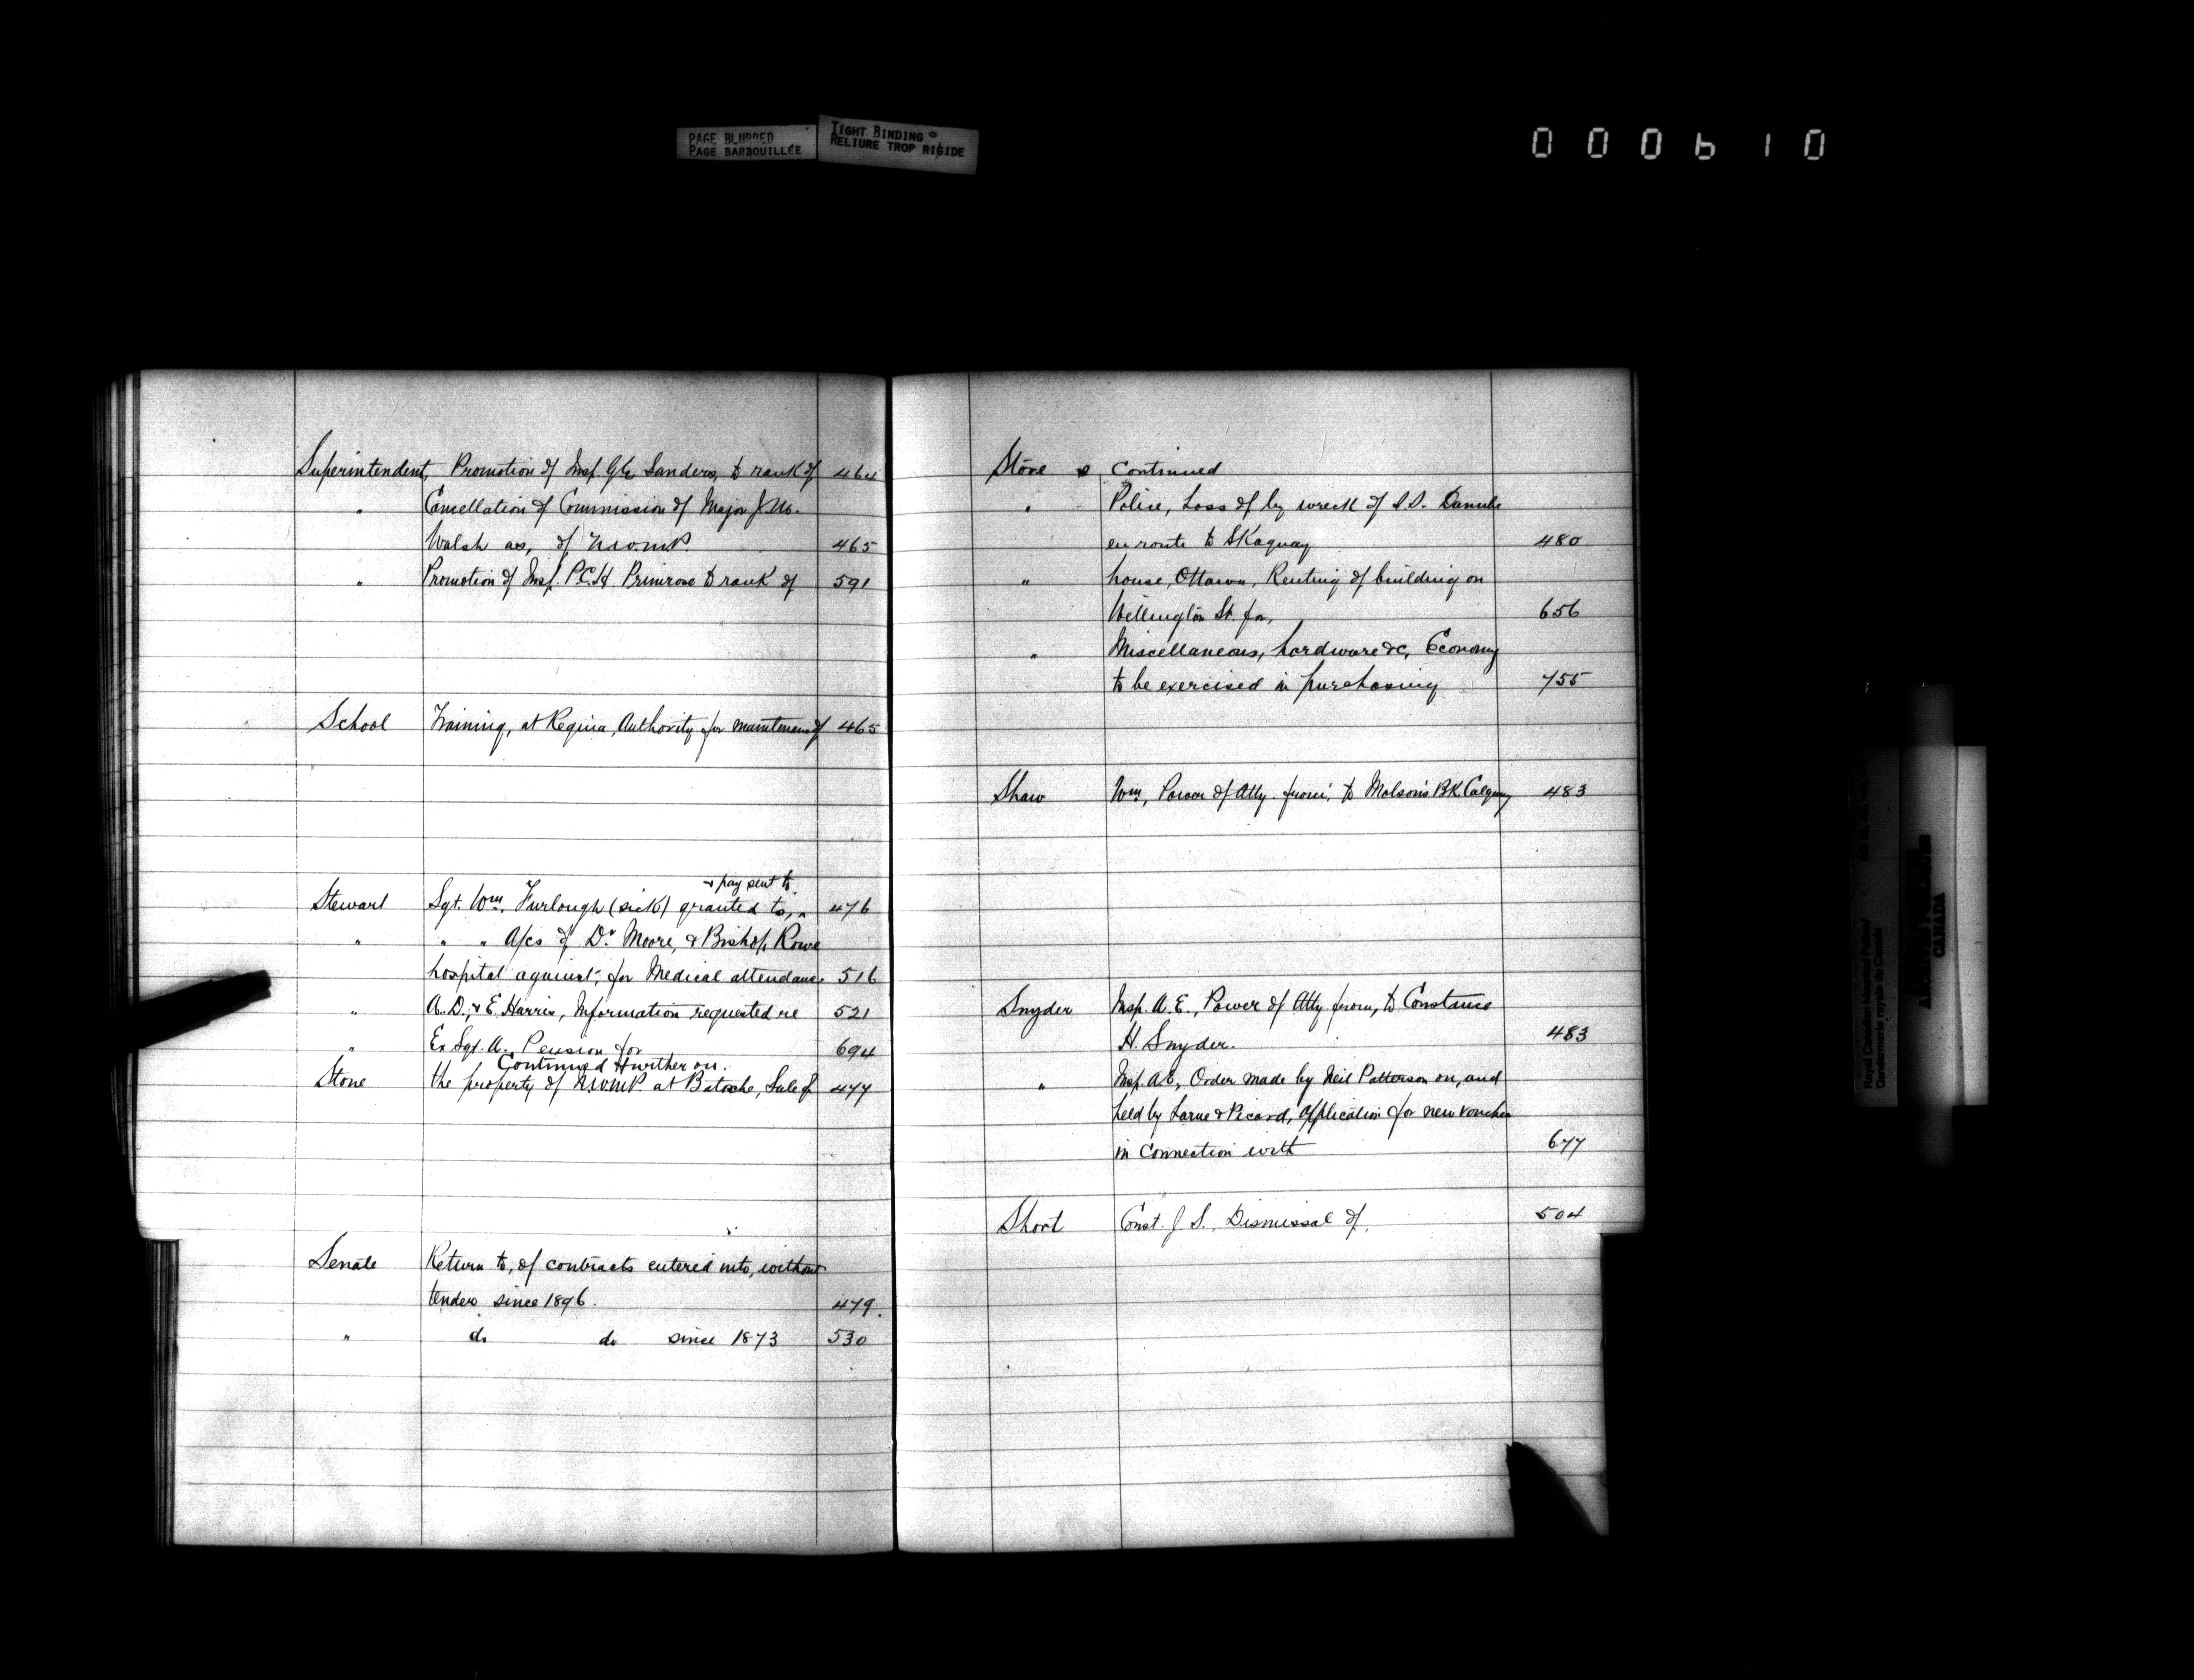 PAGE BLURRED
PAGE BARBOUILLÉE
TIGHT BINDING
RELIURE TROP RIGIDE
000610
Superintendent, Promotion of Insp. G E Sanders, to rank of 464
" Cancellation of Commission of Major J.M.
Walsh as, of N.W.M.P. 465
" Promotion of Insp. P.C.H. Primrose to rank of 591
School Training, at Regina, Authority for maintenance of 465
+ pay sent to.
Stewart Sgt. Wm, Furlough (sick) granted to, ^ 476
" " " A/cs of Dr. Moore, & Bishop Rowe
hospital against, for Medical attendance 516
" A.D., & E. Harris, Information requested re 521
" Ex Sgt. A., Pension for 694
Continued further on.
Store the property of N.W.M.P. at Batoche, Sale of 477
Senate Return to, of contracts entered into, without
tenders since 1896. 479.
" do do since 1873 530
Store s Continued
" Police, Loss of by wreck of S.S. Danube
en route to Skaguay 480
" house, Ottawa, Renting of building on
Wellington St. for, 656
" Miscellaneous, hardware &c, Economy
to be exercised in purchasing 755
Shaw Wm, Power of Atty. from, to Molson's BK. Calgary 483
Snyder Insp. A.E., Power of Atty from, to Constance
H. Snyder. 483
" Insp. A.E., Order made by Neil Patterson on, and
held by Larue & Picard, Application for new voucher
in connection with 677
Short Const. J. S., Dismissal of, 504
Royal Canadian Mounted Police/
Gendarmerie royale du Canada
CANADA